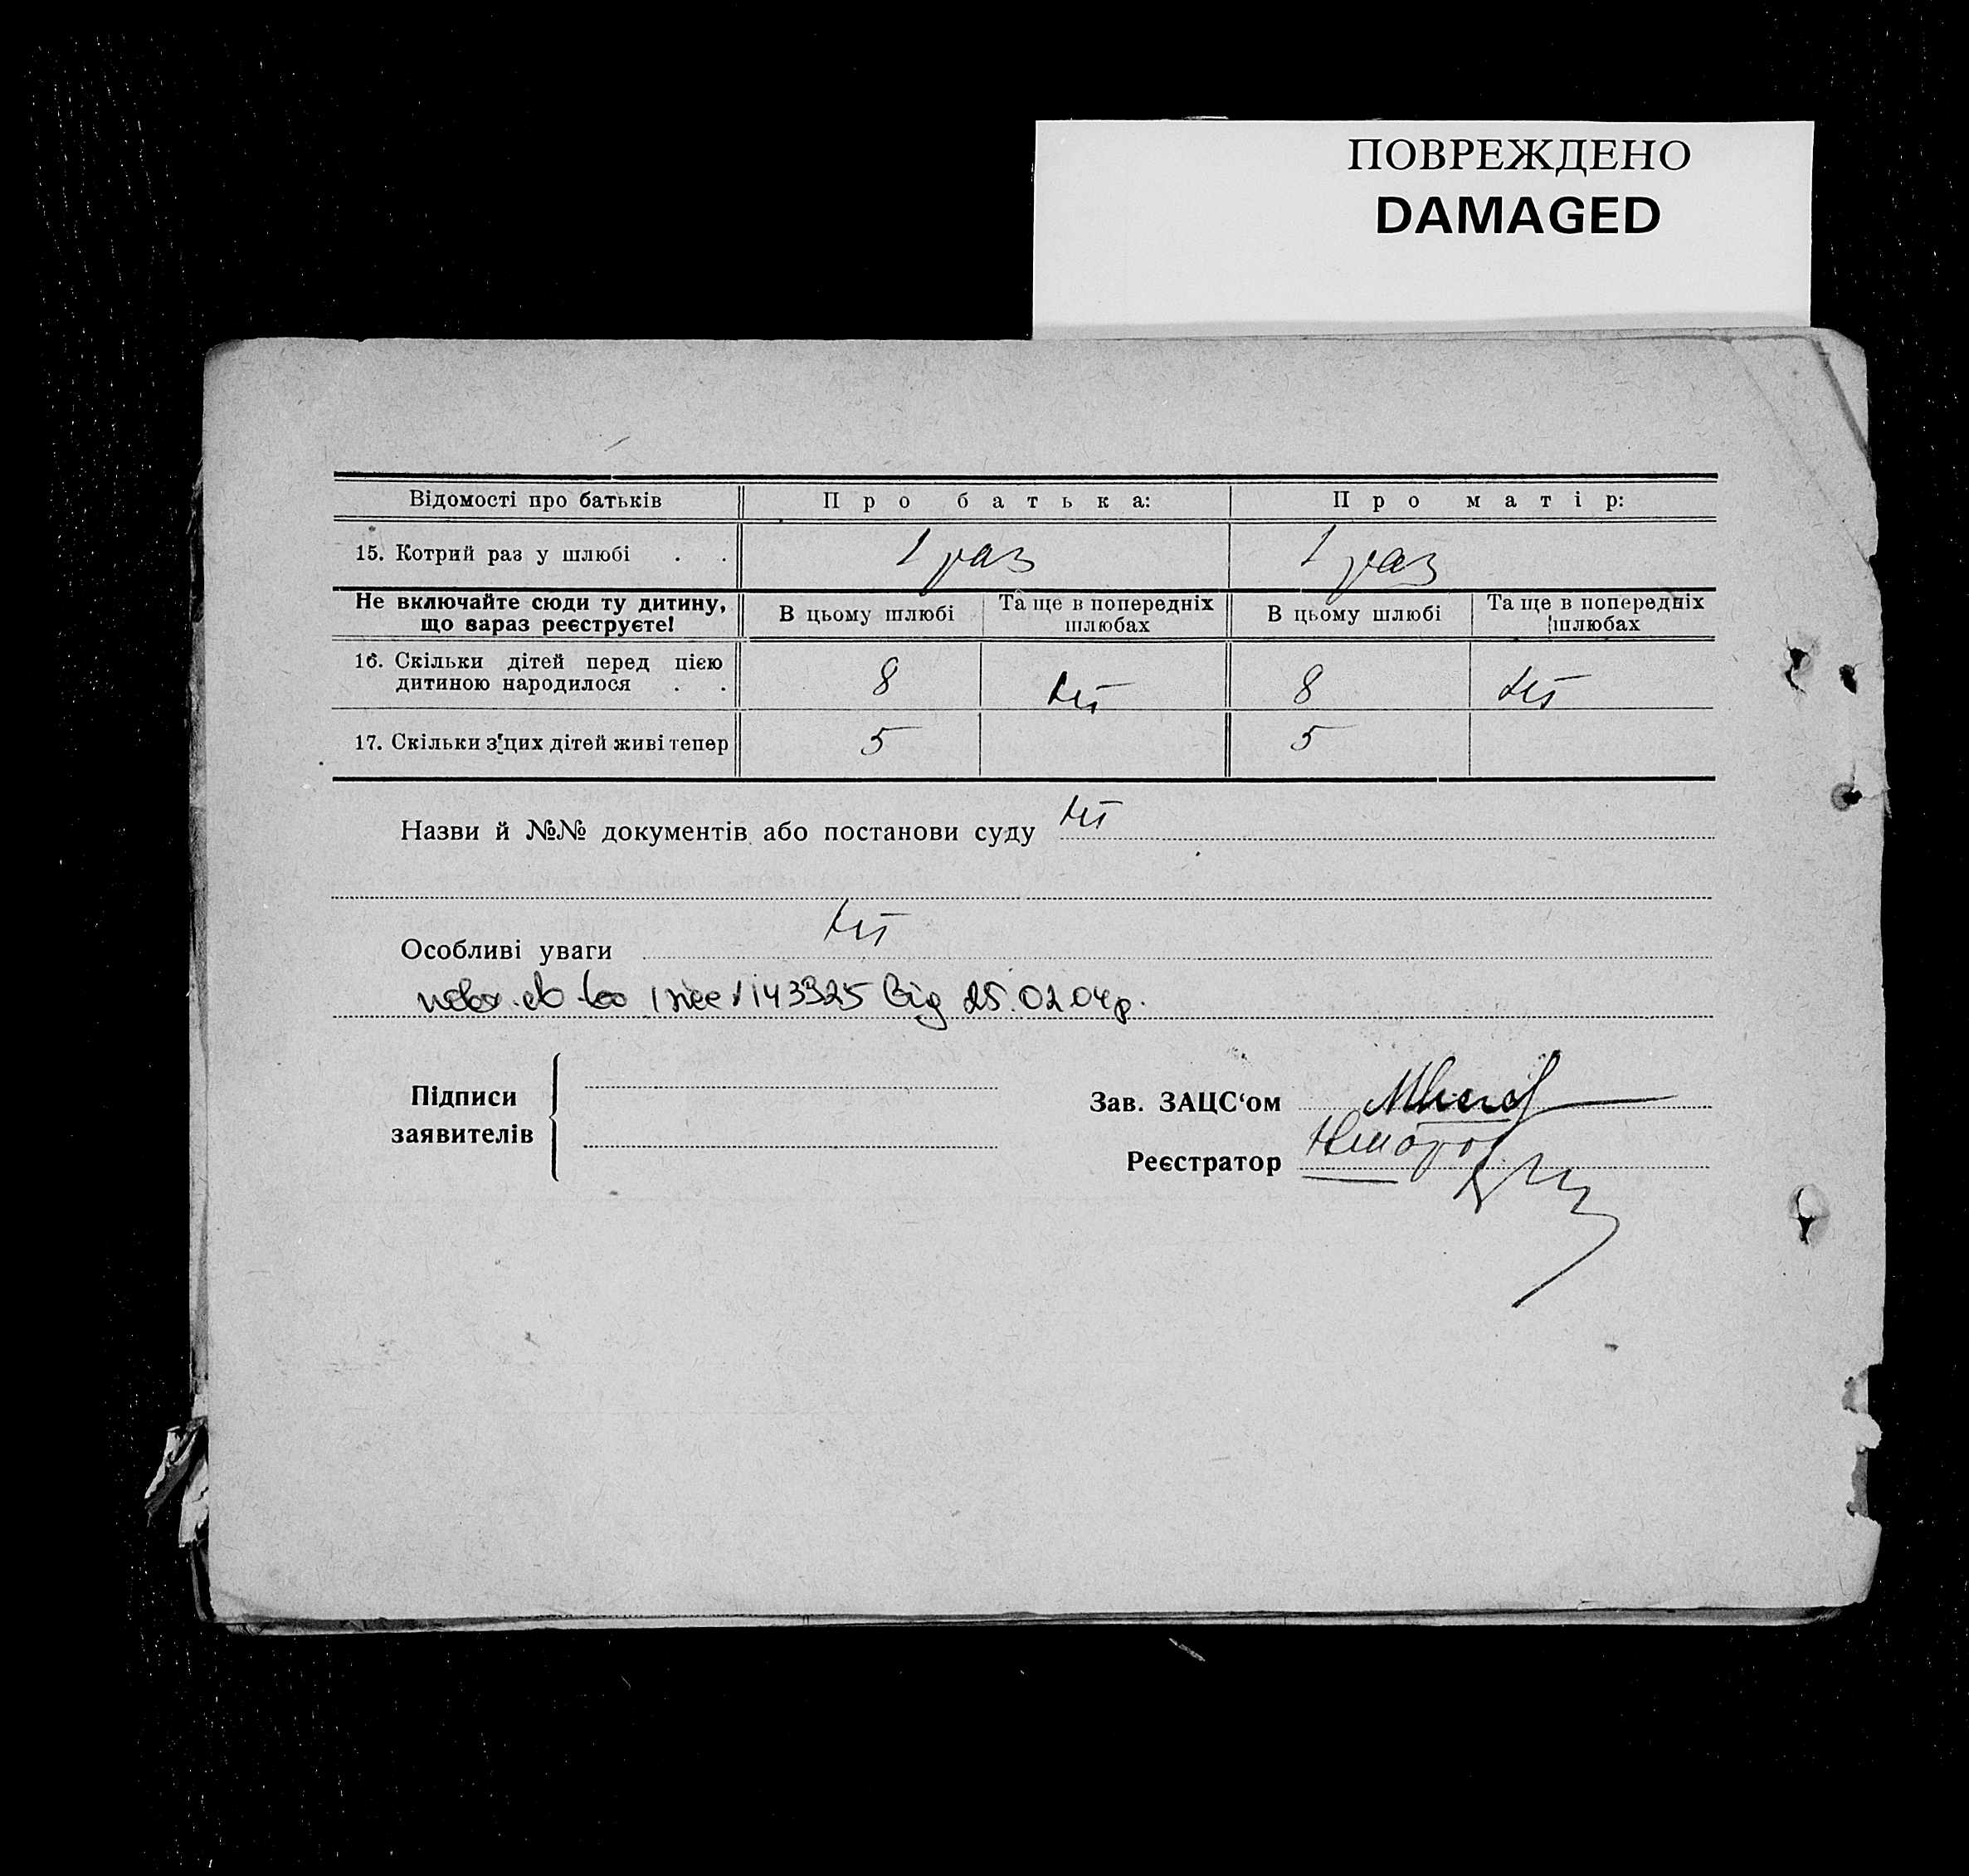 ПОВРЕЖДЕНО
DAMAGED
Відомості про батьків Про батька: Про матір:
15. Котрий раз у шлюбі . . 1 раз 1 раз
Не включайте сюди ту дитину, що зараз реєструєте! В цьому шлюбі Та ще в попередніх шлюбах В цьому шлюбі Та ще в попередніх шлюбах
16. Скільки дітей перед цією дитиною народилося . . 8 ні 8 ні
17. Скільки з цих дітей живі тепер 5 5
Назви й №№ документів або постанови суду ні
Особливі уваги ні
143325 від 25.02.04р.
Підписи заявителів
Зав. ЗАЦС‘ом
Реєстратор